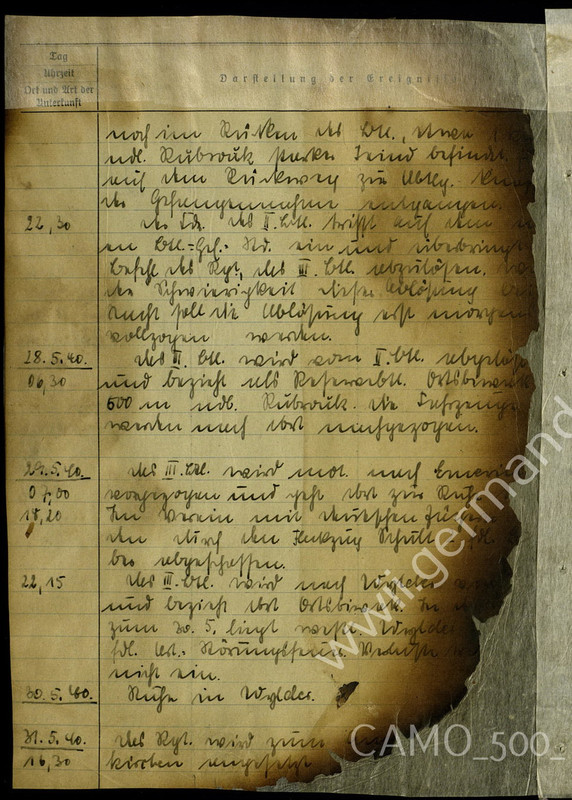 Tag
Uhrzeit
Ort und Art der
Unterkunft
Darstellung der Ereignisse
noch im Rücken des Btl., etwa
ndl. Rubrouk starker Feind befindet
auf dem Rückweg zur Abtlg.
der Gefangennahme entgangen.
22,30
der Fdr. des II. Btl. trifft auf dem
en Btl.-Gef.-Std. ein und überbringt
Befehl des Rgt., das III. Btl. abzulösen.
der Schwierigkeit dieser Ablösung
Nacht soll die Ablösung erst morgen
vollzogen werden.
28.5.40.
06,30
Das III. Btl. wird vom II. Btl. abgelöst
und bezieht als Reservebtl. Ortsbiwak
500 m ndl. Rubrouk. Die Fahrzeuge
werden nach dort nachgezogen.
29.5.40.
07,00
Das III. Btl. wird mot. nach
vorgezogen und geht dort zur Ruhe
18,20
Im Verein mit deutschen
den durch den Flakzug Schult
ber abgeschossen.
22,15
Das III. Btl. wird nach Wylder
und bezieht dort Ortsbiwak. In
zum 30.5. liegt Wylder
fdl. Art.-Störungsfeuer. Verluste
nicht ein.
30.5.40.
Ruhe in Wylder.
31.5.40.
16,30
Das Rgt. wird zum
kirchen eingesetzt
www.germand
CAMO_500_